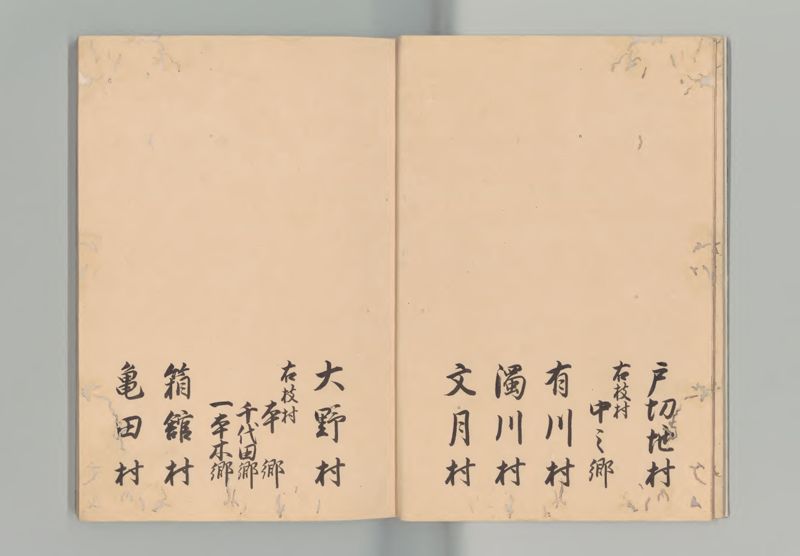 戸切地村
右枝村
中之郷
有川村
濁川村
文月村
大野村
右枝村
本郷
千代田郷
一本木郷
箱舘村
亀田村